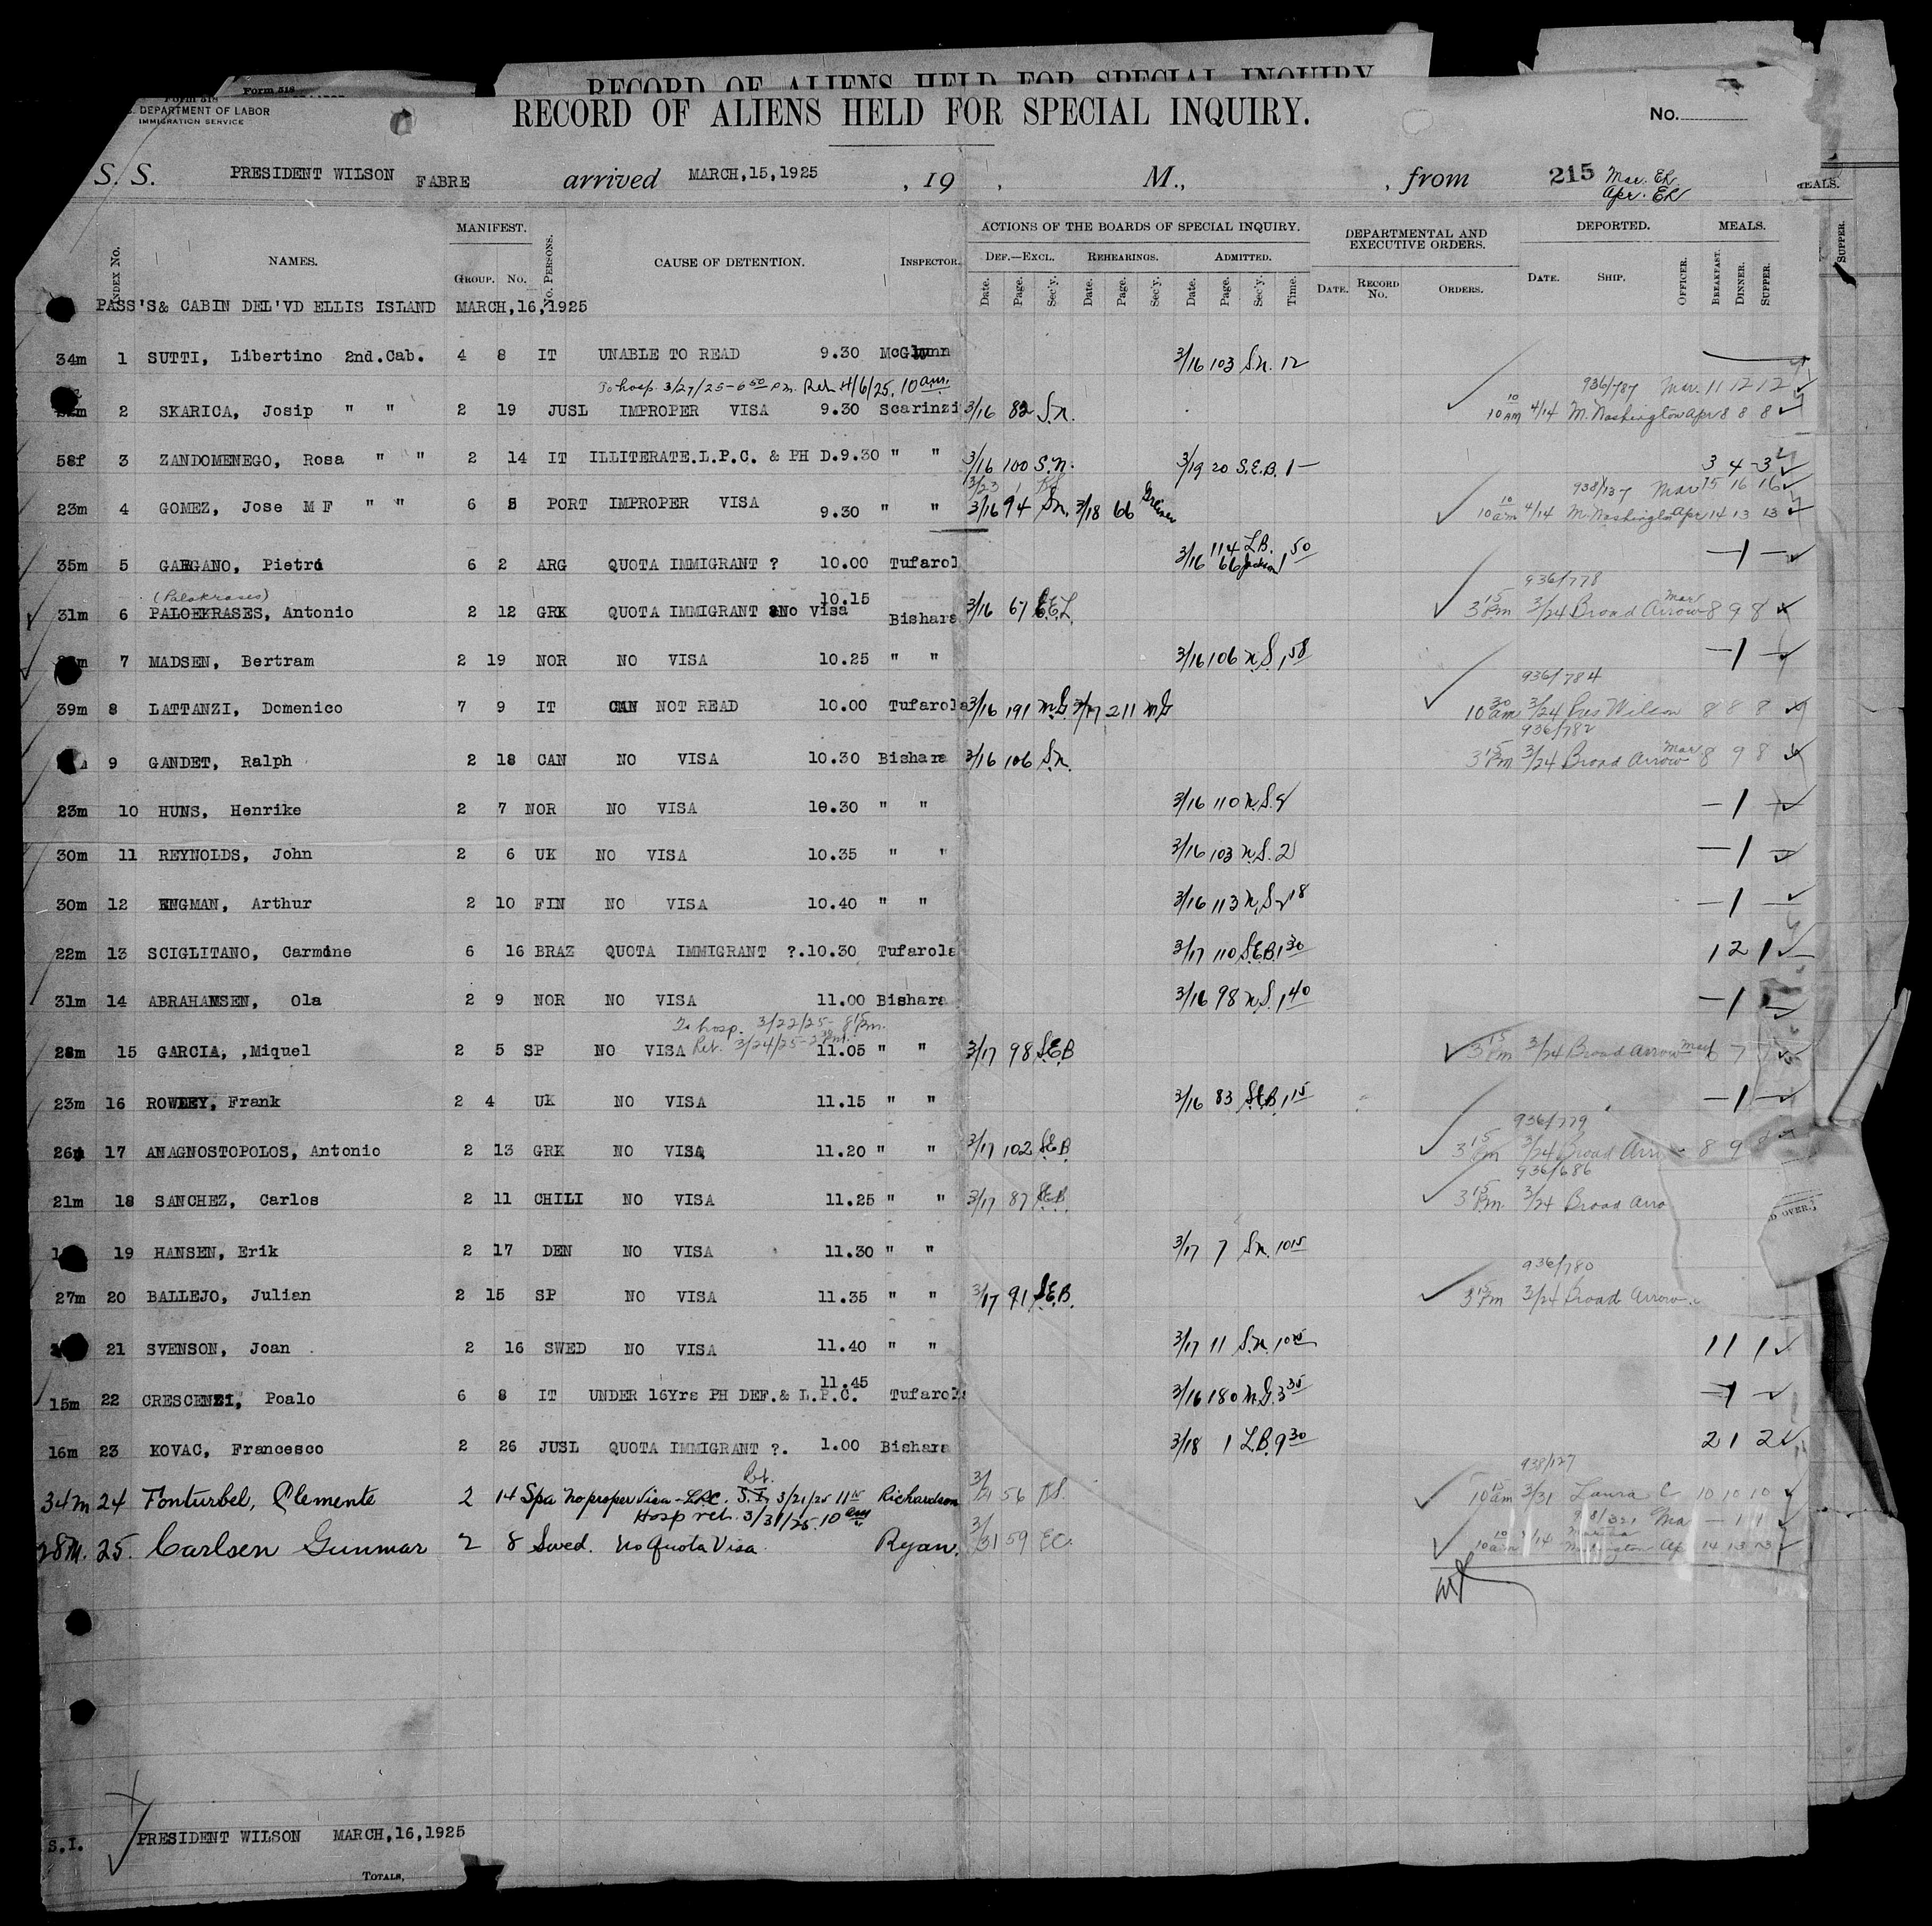 RECORD OF ALIENS HELD FOR SPECIAL INQUIRY
Form 518
DEPARTMENT OF LABOR
IMMIGRATION SERVICE
RECORD OF ALIENS HELD FOR SPECIAL INQUIRY.
No.
S. S. PRESIDENT WILSON FABRE arrived MARCH,15,1925 , 19 , M., , from 215 Mar. EK
Apr. EK
MEALS.
SUPPER.
Index No. NAMES. MANIFEST. Group. No. No. Persons. CAUSE OF DETENTION. Inspector. ACTIONS OF THE BOARDS OF SPECIAL INQUIRY. Def.—Excl. Date. Page. Sec'y. Rehearings. Date. Page. Sec'y. Admitted. Date. Page. Sec'y. Time. DEPARTMENTAL AND EXECUTIVE ORDERS. Date. Record No. Orders. DEPORTED. Date. Ship. Officer. MEALS. Breakfast. Dinner. Supper.
PASS'S& CABIN DEL'VD ELLIS ISLAND MARCH,16,1925
34m 1 SUTTI, Libertino 2nd.Cab. 4 8 IT UNABLE TO READ 9.30 McGlynn 3/16 103 S.N. 12
To hosp. 3/27/25-6 50 P.M. Ret 4/6/25, 10 am. 936/787 Mar. 11 12 12
2 SKARICA, Josip " " 2 19 JUSL IMPROPER VISA 9.30 Scarinzi 3/16 82 S.N. 10 10AM 4/14 M. Washington Apr 8 8 8
58f 3 ZANDOMENEGO, Rosa " " 2 14 IT ILLITERATE.L.P.C. & PH D.9.30 " " 3/16 100 S.N. 3/19 20 S.E.B. 1 — 3 4 3
3/23 1 938/137 Mar 15 16 16
23m 4 GOMEZ, Jose M F " " 6 5 PORT IMPROPER VISA 9.30 " " 3/16 94 S.N. 3/18 66 10 10am 4/14 M. Washington Apr 14 13 13
35m 5 GARGANO, Pietro 6 2 ARG QUOTA IMMIGRANT ? 10.00 Tufarol 3/16 114 L.B. 66 1 50 — 1 —
(Palokrases) 936/778
31m 6 PALOEKRASES, Antonio 2 12 GRK QUOTA IMMIGRANT &No Visa 10.15 Bishara 3/16 67 3 15 Pm 3/24 Broad Arrow Mar 8 9 8
7 MADSEN, Bertram 2 19 NOR NO VISA 10.25 " " 3/16 106 N.S. 1 58 — 1 —
936/784
39m 8 LATTANZI, Domenico 7 9 IT CAN NOT READ 10.00 Tufarola 3/16 191 M.G. 3/17 211 M.G. 10 30 am 3/24 Pres Wilson 8 8 8
936/782
9 GANDET, Ralph 2 18 CAN NO VISA 10.30 Bishara 3/16 106 S.N. 3 15 Pm 3/24 Broad Arrow Mar. 8 9 8
23m 10 HUNS, Henrike 2 7 NOR NO VISA 10.30 " " 3/16 110 N.S. — 1 —
30m 11 REYNOLDS, John 2 6 UK NO VISA 10.35 " " 3/16 103 N.S. 2 — 1 —
30m 12 ENGMAN, Arthur 2 10 FIN NO VISA 10.40 " " 3/16 113 N.S. 2 18 — 1 —
22m 13 SCIGLITANO, Carmine 6 16 BRAZ QUOTA IMMIGRANT ?.10.30 Tufarola 3/17 110 S.E.B. 1 30 1 2 1
31m 14 ABRAHAMSEN, Ola 2 9 NOR NO VISA 11.00 Bishara 3/16 98 N.S. 1 40 — 1 —
To hosp. 3/22/25- 8 15 Pm.
Ret. 3/24/25-
28m 15 GARCIA, ,Miquel 2 5 SP NO VISA 11.05 " " 3/17 98 S.E.B 3 15 Pm 3/24 Broad Arrow Mar 6 7 7
23m 16 ROWLEY, Frank 2 4 UK NO VISA 11.15 " " 3/16 83 S.E.B. 1 15 — 1 —
936/779
26m 17 ANAGNOSTOPOLOS, Antonio 2 13 GRK NO VISA 11.20 " " 3/17 102 S.E.B. 3 15 Pm 3/24 Broad Arro 8 9 8
936/686
21m 18 SANCHEZ, Carlos 2 11 CHILI NO VISA 11.25 " " 3/17 87 S.E.B. 3 15 P.m. 3/24 Broad Arro
19 HANSEN, Erik 2 17 DEN NO VISA 11.30 " " 3/17 7 S.N. 10 15
936/780
27m 20 BALLEJO, Julian 2 15 SP NO VISA 11.35 " " 3/17 91 S.E.B. 3 15 Pm 3/24 Broad Arrow
21 SVENSON, Joan 2 16 SWED NO VISA 11.40 " " 3/17 11 S.N. 1 1 1
15m 22 CRESCENZI, Poalo 6 8 IT UNDER 16Yrs PH DEF.& L.P.C. 11.45 Tufarola 3/16 180 M.G. 3 35 — 1 —
16m 23 KOVAC, Francesco 2 26 JUSL QUOTA IMMIGRANT ?. 1.00 Bishara 3/18 1 L.B. 9 30 2 1 2
938/127
34m 24 Fonturbel, Clemente 2 14 Spa No proper Visa - L.P.C. Ret. S.I. 3/21/25 11 15 Richardson 56 10 15 am 3/31 Laura C 10 10 10
Hosp ret. 3/31/25. 10 am
28M. 25. Carlsen Gunmar 2 8 Swed. No Quota Visa. Ryan. 3/31 59 E.C. 10 10am 4/14 Martha Washington Ap 14 13 13
D OVER.)
S.I. PRESIDENT WILSON MARCH,16,1925
Totals,